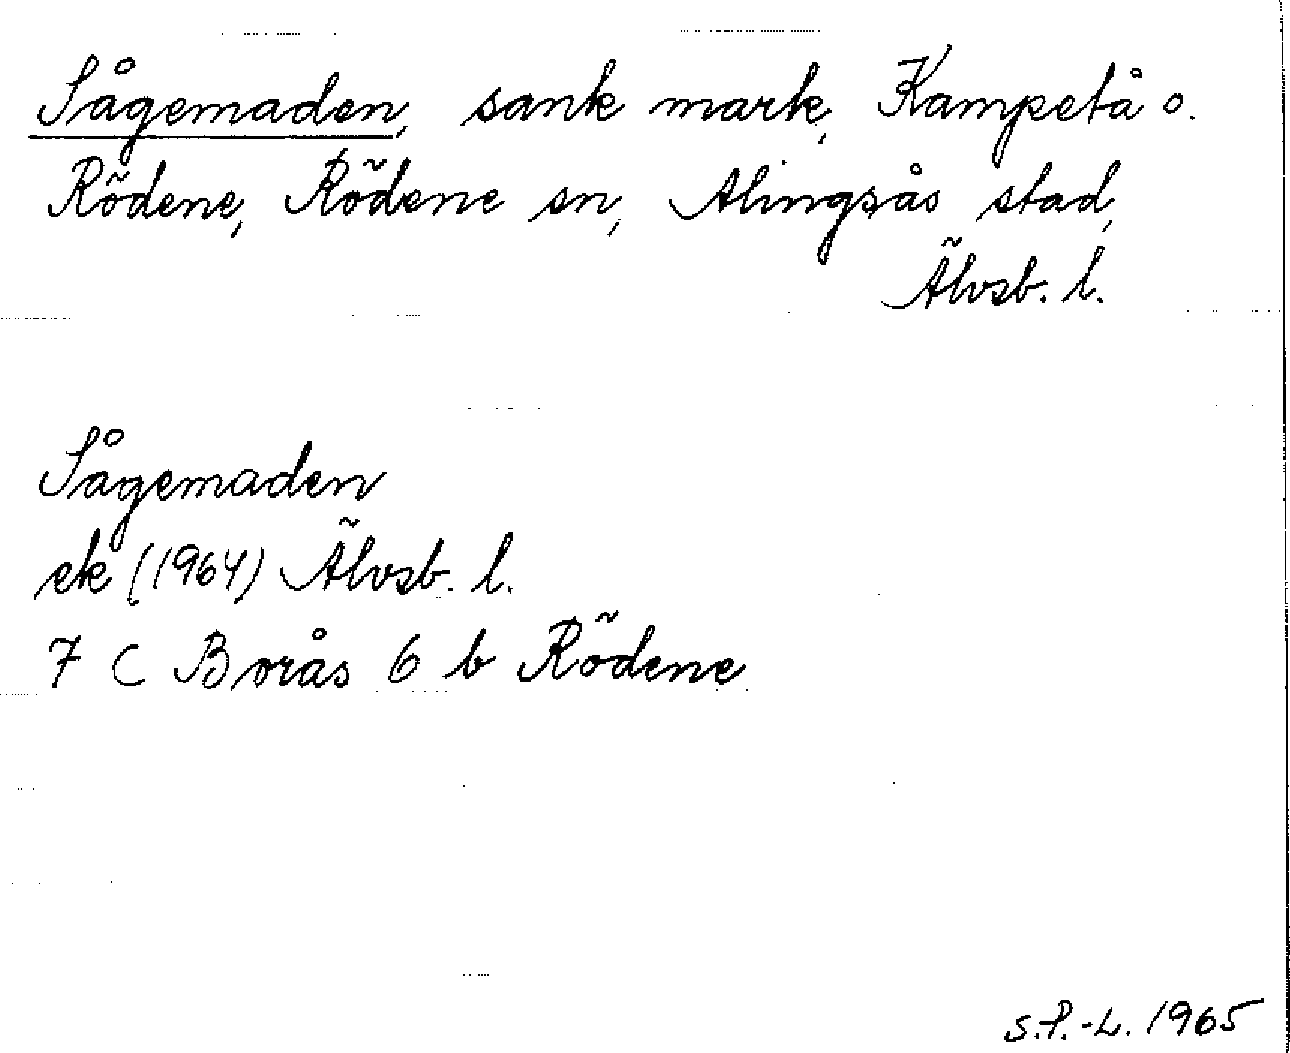 Sågemaden, sank mark, Kampetå o.
Rödene, Rödene sn, Alingsås stad,
Älvsb. l.
Sågemaden
ek (1964) Älvsb. l.
7 C Borås 6 b Rödene
S.P.-L. 1965